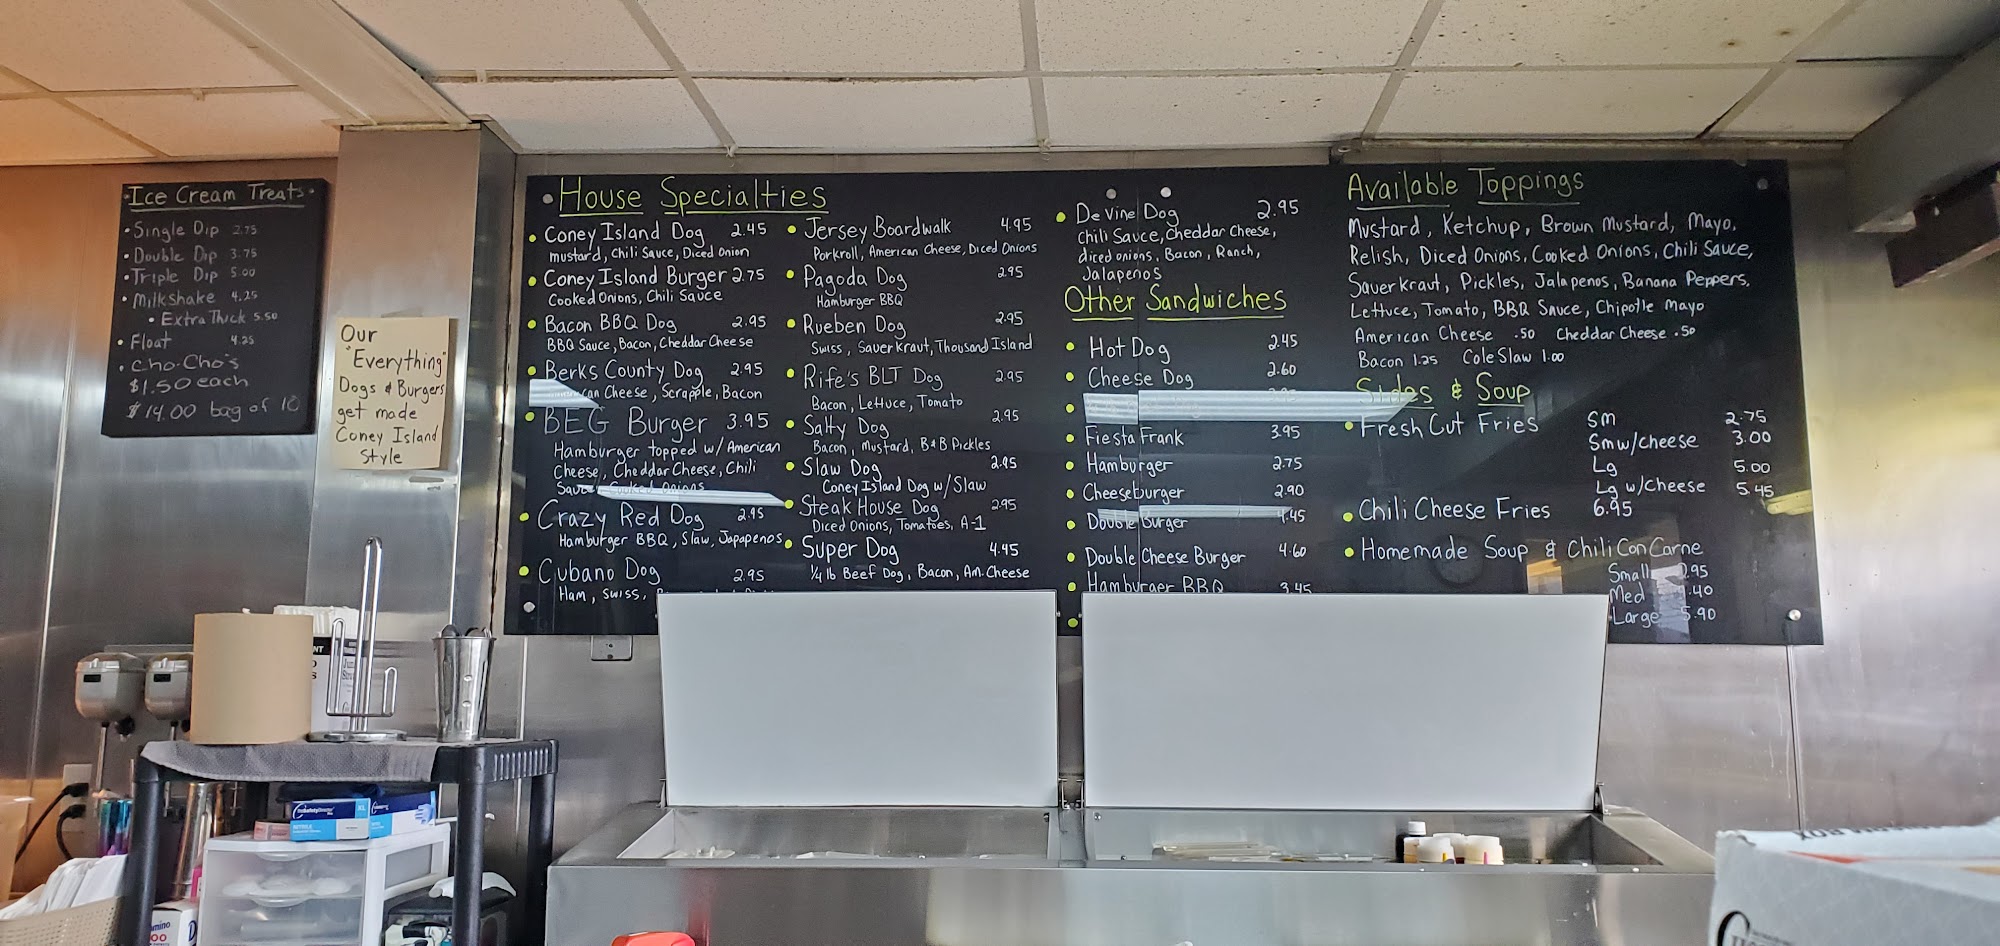 Ice Cream Treats
Single Dip 2.75
Double Dip 3.75
Triple Dip 5.00
Milkshake 4.25
Extra Thick 5.50
Float 4.25
Cho-Cho's
$1.50 each
$14.00 bag of 10
Our
"Everything"
Dogs & Burgers
get made
Coney Island
Style
House Specialties
Coney Island Dog 2.45
mustard, Chili Sauce, Diced Onion
Coney Island Burger 2.75
Cooked Onions, Chili Sauce
Bacon BBQ Dog 2.95
BBQ Sauce, Bacon, Cheddar Cheese
Berks County Dog 2.95
Cheese, Scrapple, Bacon
BEG Burger 3.95
Hamburger topped w/ American
Cheese, Cheddar Cheese, Chili
Sauce, Cooked Onions
Crazy Red Dog 2.95
Hamburger BBQ, Slaw, Japapenos
Cubano Dog 2.95
Ham, Swiss,
Jersey Boardwalk 4.95
Porkroll, American Cheese, Diced Onions
Pagoda Dog 2.95
Hamburger BBQ
Rueben Dog 2.95
Swiss, Sauerkraut, Thousand Island
Rife's BLT Dog 2.95
Bacon, Lettuce, Tomato
Salty Dog 2.95
Bacon, Mustard, B&B Pickles
Slaw Dog 2.95
Coney Island Dog w/ Slaw
Steak House Dog 2.95
Diced Onions, Tomatoes, A-1
Super Dog 4.45
1/4 lb Beef Dog, Bacon, Am. Cheese
DeVine Dog 2.95
Chili Sauce, Cheddar Cheese,
diced onions, Bacon, Ranch,
Jalapenos
Other Sandwiches
Hot Dog 2.45
Cheese Dog 2.60
Fiesta Frank 3.95
Hamburger 2.75
Cheeseburger 2.90
Double Burger 4.45
Double Cheese Burger 4.60
Hamburger BBQ 3.45
Available Toppings
Mustard, Ketchup, Brown Mustard, Mayo,
Relish, Diced Onions, Cooked Onions, Chili Sauce,
Sauerkraut, Pickles, Jalapenos, Banana Peppers,
Lettuce, Tomato, BBQ Sauce, Chipotle Mayo
American Cheese .50 Cheddar Cheese .50
Bacon 1.25 Cole Slaw 1.00
Sides & Soup
Fresh Cut Fries Sm 2.75
Sm w/cheese 3.00
Lg 5.00
Lg w/cheese 5.45
Chili Cheese Fries 6.95
Homemade Soup & Chili Con Carne
Small .95
Med .40
Large 5.90